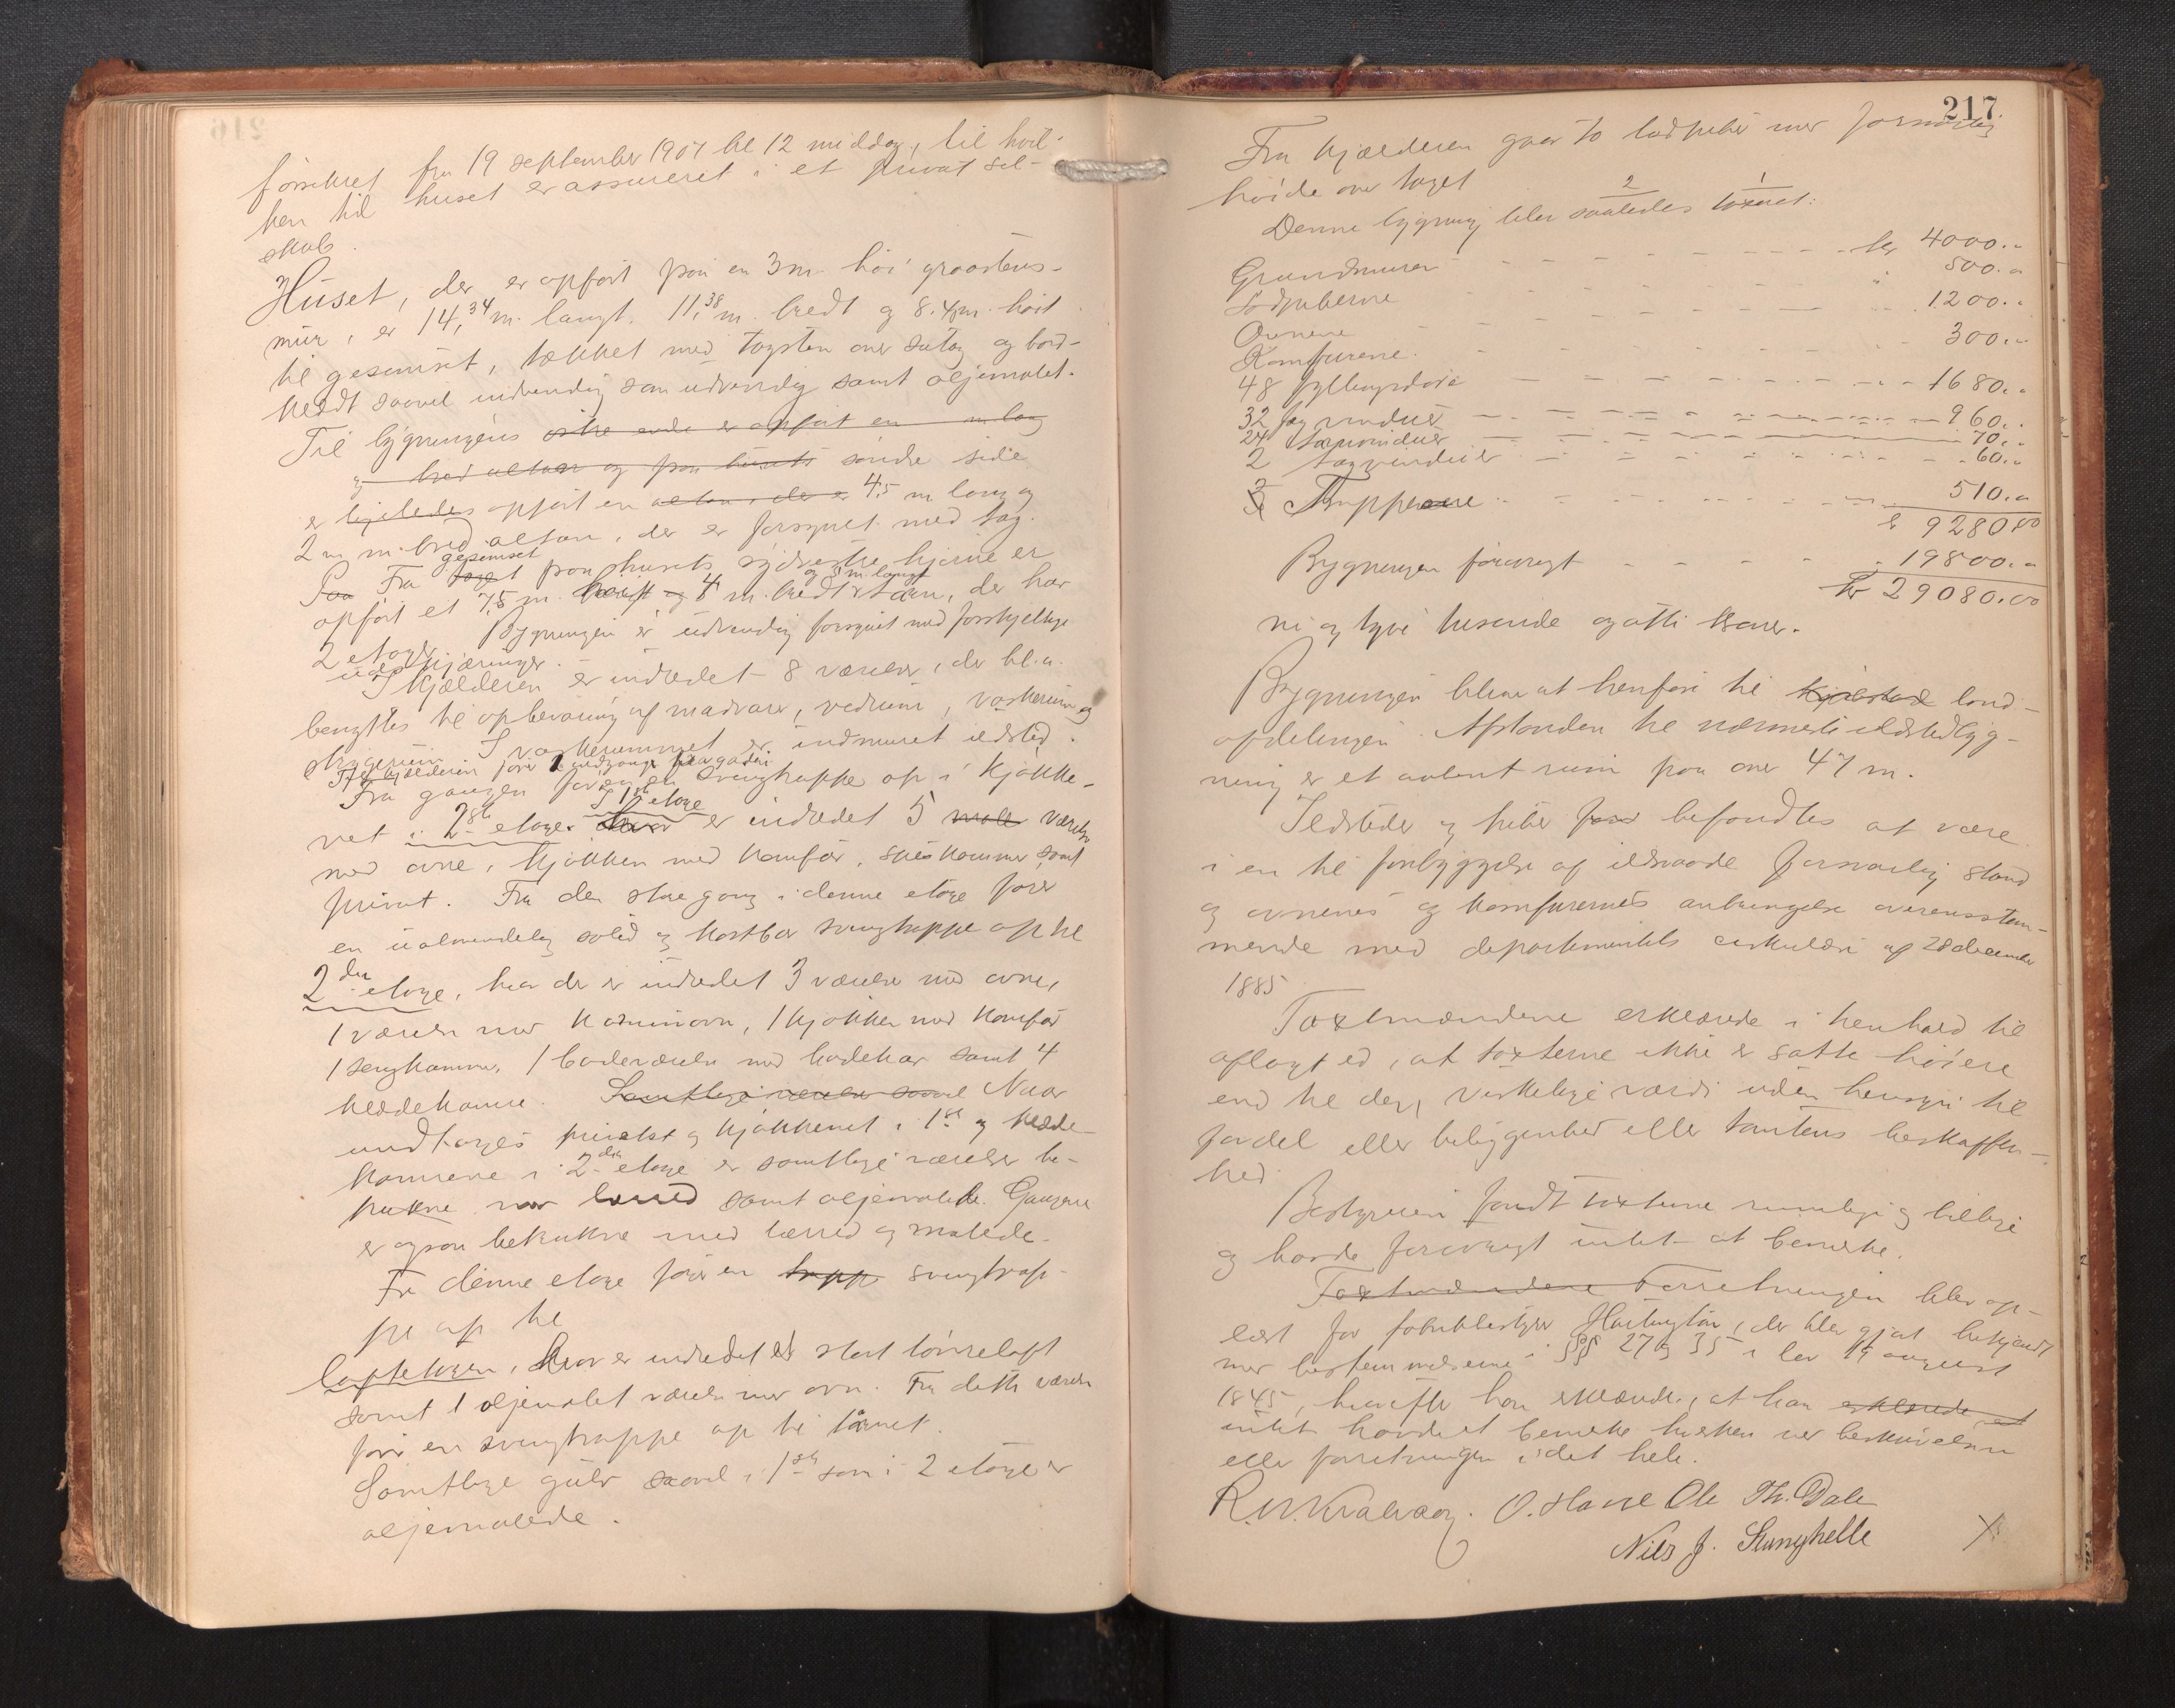 forsikret fra 19 september 1907 kl 12 middag, til hvil-
ken tid huset er assureret i et privat sel-
skab.
Huset, der er opført paa en 3 m. høi graastens-
mur, er 14,34 m. langt, 11,38 m. bredt og 8.4 m. høit
til gesimset, tækket med tagsten over sutag og bord-
klædt saavel indvendig som udvendig samt oljemalet.
Til bygningens østre ende er opført en m lang
og bred altan og paa husets søndre side
er ligeledes opført en altan, der er 4,5 m lang og
2 m. bred altan, der er forsynet med tag.
Paa Fra taget gesimset paa husets sydvestre hjørne er
opført et 7,5 m. høit og 4 m. bredt og 8 m. langt taarn, der har
2 etager. Bygningen er udvendig forsynet med forskjellige
udskjæringer.
I kjælderen er indredet 8 værelser, der bl.a.
benyttes til opbevaring af madvarer, vedrum, vaskerum og
strygerum. I vaskerummet er indmuret ildsted.
Til kjælderen fører 1 indgange fra gaden
Fra gangen fører en svingtrappe op i kjøkke-
net i 1ste etage. I 1ste etage er indredet 5 male værelser
med ovne, kjøkken med komfur, spiskammer samt
privat. Fra den store gang i denne etage fører
en ualmindelig solid og kostbar svingtrappe op til
2den etage, hvor der er indredet 3 værelser med ovne,
1 værelse med kaminovn, 1 kjøkken med komfur
1 sengkammer, 1 badeværelse med badekar samt 4
klædekamre. Samtlige værelser saavel Naar
undtages privatet og kjøkkenet i 1ste og klæde-
kamrene i 2den etage er samtlige værelser be-
trukne med lærred samt oljemalede. Gangene
er ogsaa betrukne med lærred og malede.
Fra denne etage fører en trapp svingtrap-
pe op til
loftetagen, hvor er indredet et stort tørreloft
samt 1 oljemalet værelse med ovn. Fra dette værelse
fører en svingtrappe op til tårnet.
Samtlige gulv saavel i 1ste som i 2 etage er
oljemalede.
217
Fra kjælderen gaar to ladpiber med forsvarlig
høide over taget
2 1
Denne bygning blev saaledes taxeret:
Grundmuren - - - - kr 4000..
Ladpiberne - - - - " 500..
Ovnene - - - - 1200..
Komfurene. - - - - 300..
48 fyllingsdøre - - - - 1680..
32 fag vinduer - - - - 960..
24 taarnvinduer - - - - 70..
2 tagvinduer - - - - 60..
3 Trapperne - - - - 510..
kr 9280.00
Bygningen forøvrigt - - - - 19800..
kr 29080.00
ni og tyve tusende og otti kroner.
Bygningen bliver at henføre til kjøbstad land-
afdelingen. Afstanden til nærmeste ildstedbyg-
ning er et aabent rum paa over 47 m.
Ildsteder og piber fan befandtes at være
i en til forebyggelse af ildsvaade forsvarlig stand
og ovnenes og komfurernes anbringelse overensstem-
mende med departementets cirkulære af 28 december
1885
Taxtmændene erklærede i henhold til
aflagt ed, at taxterne ikke er satte høiere
end til den virkelige værdi uden hensyn til
fordel eller beliggenhed eller tomtens beskaffen-
hed.
Bestyreren fandt taxterne rimelige og billige
og havde forøvrigt intet at bemerke.
Taxtmændene Forretningen blev op-
læst for fabrikbestyrer Hartington, der blev gjort bekjendt
med bestemmelserne i §§ 27 og 35 i lov 19 august
1845, hvorefter han erklærede, at han erklærede, at
intet havde at bemerke hverken ved beskrivelsen
eller forretningen i det hele.
R. N. Kvalvaag. O. Havre Ole Th. Dale
Niels J. Stanghelle